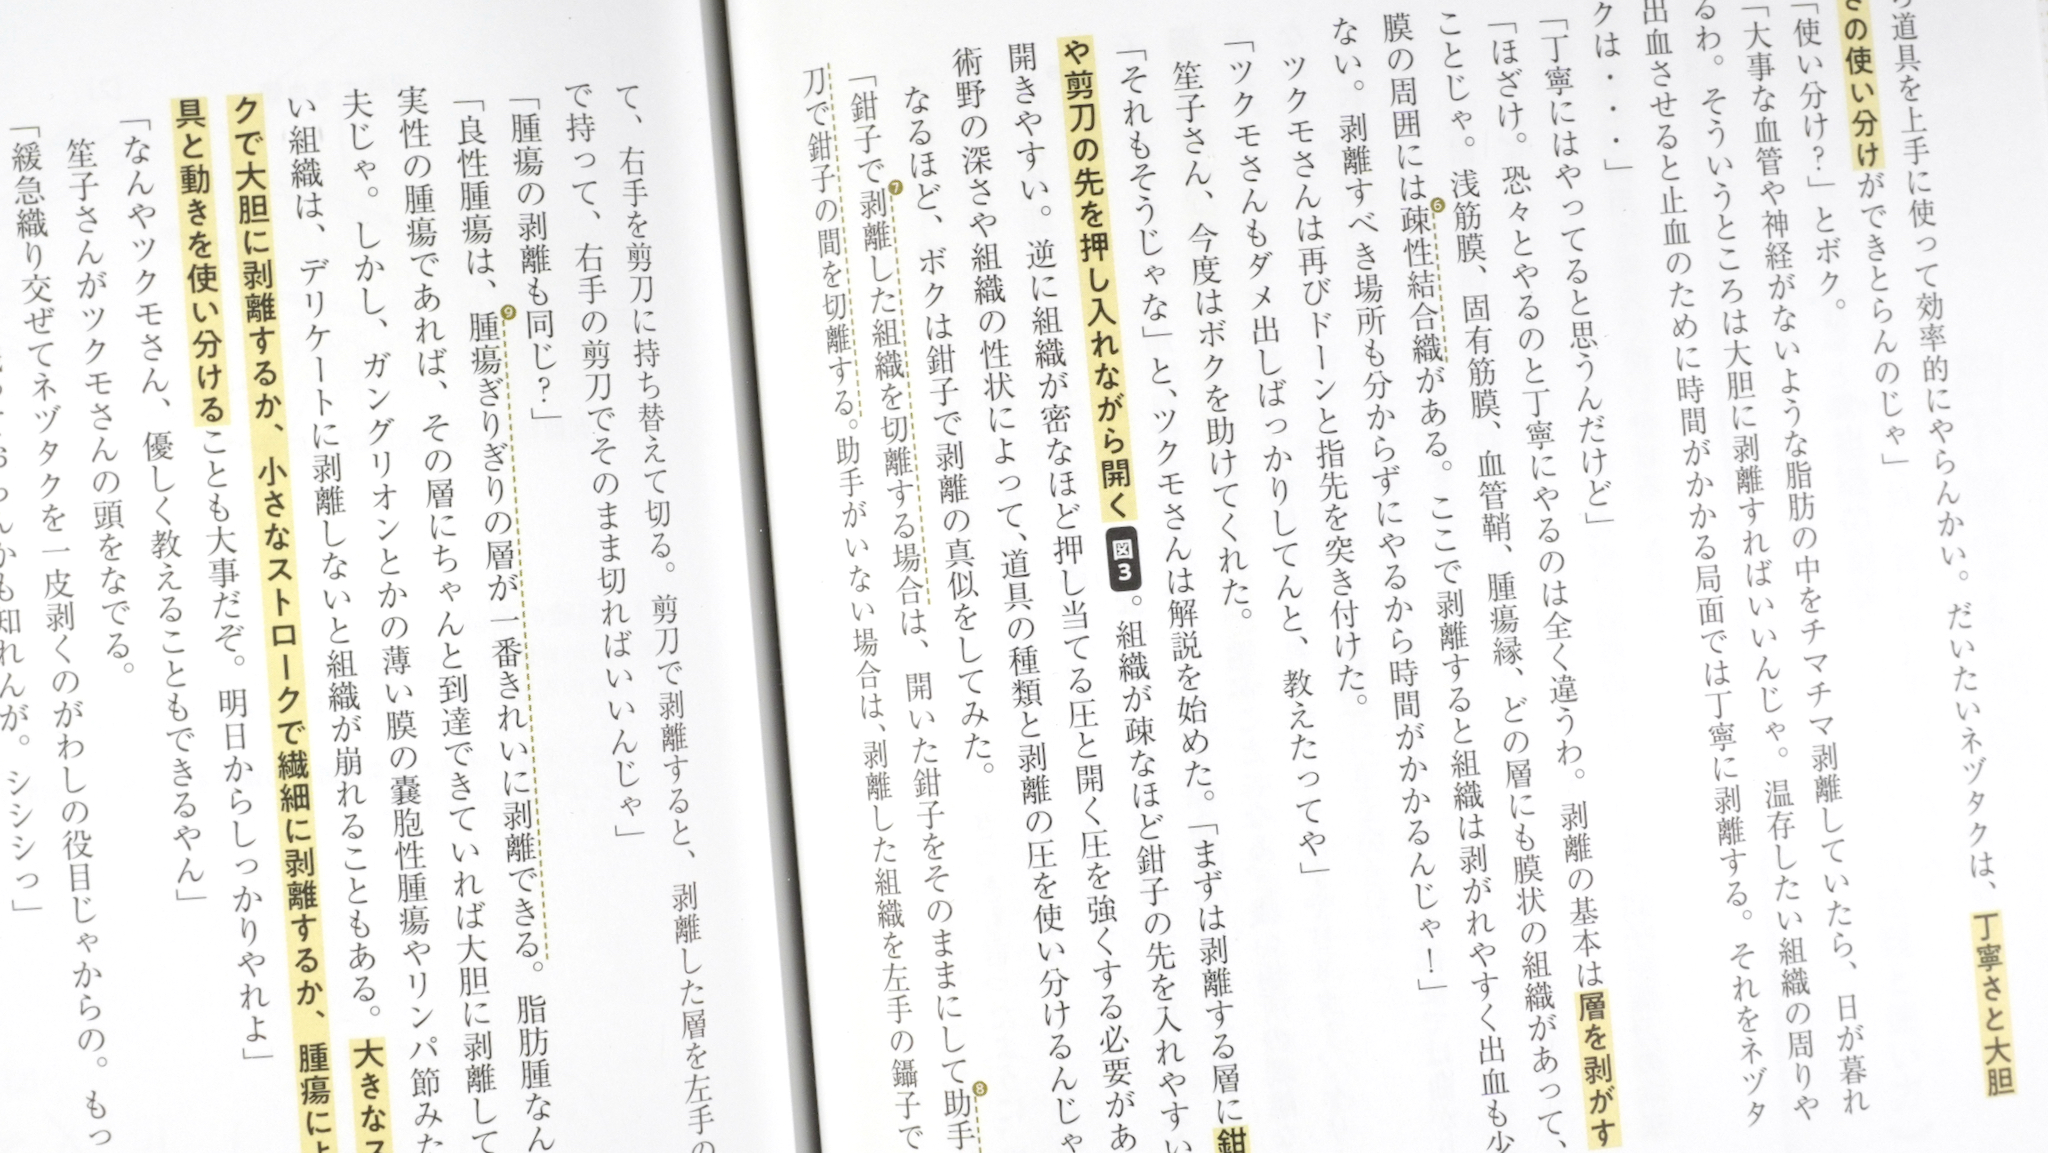 道具を上手に使って効率的にやらんかい。だいたいネヅタクは、丁寧さと大胆
さの使い分けができとらんのじゃ」
「使い分け?」とボク。
「大事な血管や神経がないような脂肪の中をチマチマ剥離していたら、日が暮れ
るわ。そういうところは大胆に剥離すればいいんじゃ。温存したい組織の周りや
出血させると止血のために時間がかかる局面では丁寧に剥離する。それをネヅタ
クは・・・」
「丁寧にはやってると思うんだけど」
「ほざけ。恐々とやるのと丁寧にやるのは全く違うわ。剥離の基本は層を剥がす
ことじゃ。浅筋膜、固有筋膜、血管鞘、腫瘍縁、どの層にも膜状の組織があって、
膜の周囲には❻疎性結合織がある。ここで剥離すると組織は剥がれやすく出血も少
ない。剥離すべき場所も分からずにやるから時間がかかるんじゃ!」
ツクモさんは再びドーンと指先を突き付けた。
「ツクモさんもダメ出しばっかりしてんと、教えたってや」
笙子さん、今度はボクを助けてくれた。
「それもそうじゃな」と、ツクモさんは解説を始めた。「まずは剥離する層に鉗子
や剪刀の先を押し入れながら開く図3。組織が疎なほど鉗子の先を入れやすい
開きやすい。逆に組織が密なほど押し当てる圧と開く圧を強くする必要があ
術野の深さや組織の性状によって、道具の種類と剥離の圧を使い分けるんじゃ
なるほど、ボクは鉗子で剥離の真似をしてみた。
「❼鉗子で剥離した組織を切離する場合は、開いた鉗子をそのままにして❽助手
刀で鉗子の間を切離する。助手がいない場合は、剥離した組織を左手の鑷子で
て、右手を剪刀に持ち替えて切る。剪刀で剥離すると、剥離した層を左手の
で持って、右手の剪刀でそのまま切ればいいんじゃ」
「腫瘍の剥離も同じ?」
「良性腫瘍は、❾腫瘍ぎりぎりの層が一番きれいに剥離できる。脂肪腫なん
実性の腫瘍であれば、その層にちゃんと到達できていれば大胆に剥離して
夫じゃ。しかし、ガングリオンとかの薄い膜の嚢胞性腫瘍やリンパ節みた
い組織は、デリケートに剥離しないと組織が崩れることもある。大きなス
クで大胆に剥離するか、小さなストロークで繊細に剥離するか、腫瘍によ
具と動きを使い分けることも大事だぞ。明日からしっかりやれよ」
「なんやツクモさん、優しく教えることもできるやん」
笙子さんがツクモさんの頭をなでる。
「緩急織り交ぜてネヅタクを一皮剥くのがわしの役目じゃからの。もっ
かも知れんが。シシシっ」